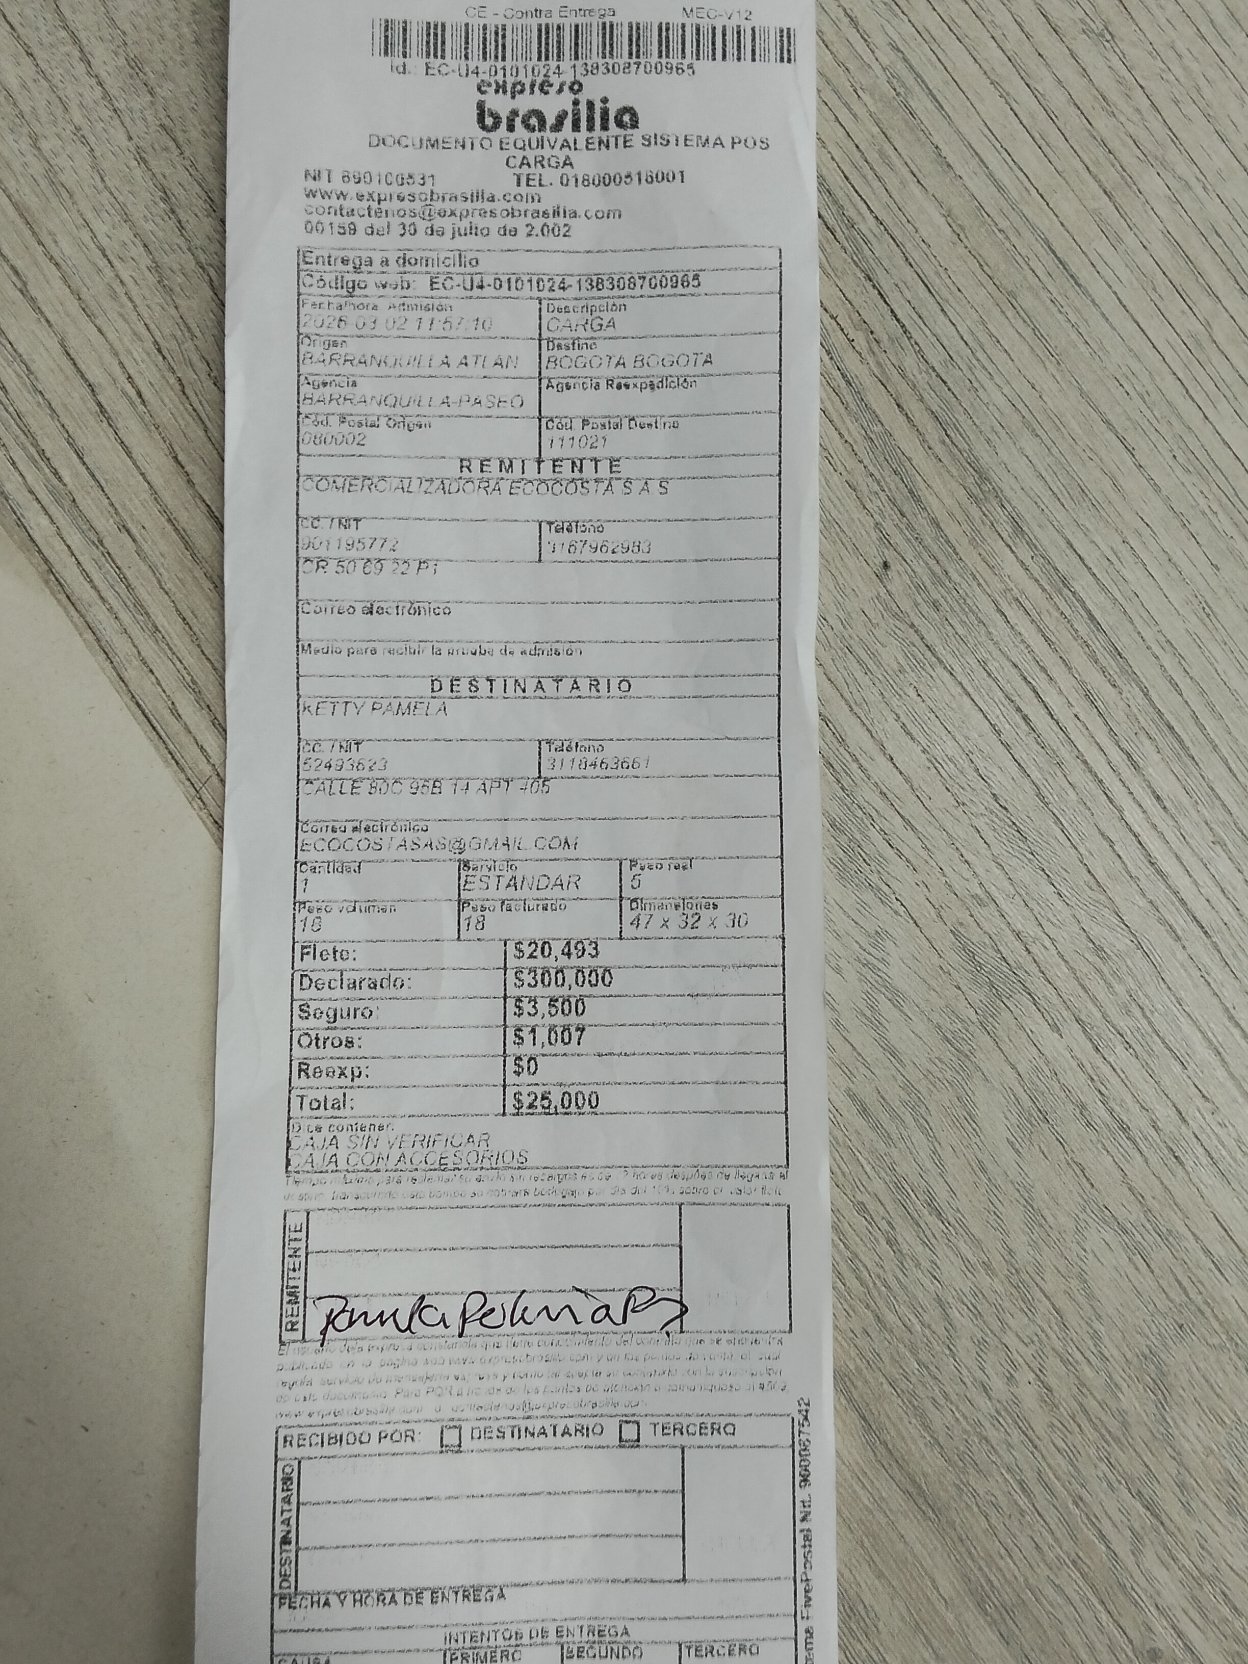 CE - Contra Entrega MEC-V12
Id.: EC-U4-0101024-138308700965
expreso
brasilia
DOCUMENTO EQUIVALENTE SISTEMA POS
CARGA
NIT 890100531 TEL. 018000518001
www.expresobrasilia.com
contactenos@expresobrasilia.com
00159 del 30 de julio de 2.002
Entrega a domicilio
Código web: EC-U4-0101024-138308700965
Fecha/hora Admisión Descripción
2026-03-02 11:57:10 CARGA
Origen Destino
BARRANQUILLA ATLAN BOGOTA BOGOTA
Agencia Agencia Reexpedición
BARRANQUILLA-PASEO
Cód. Postal Origen Cód. Postal Destino
080002 111021
REMITENTE
COMERCIALIZADORA ECOCOSTA S A S
CC. / NIT Teléfono
901195772 3167962983
CR 50 69 22 P1
Correo electrónico
Medio para recibir la prueba de admisión
DESTINATARIO
KETTY PAMELA
CC. / NIT Teléfono
52493623 3118463661
CALLE 80C 95B 14 APT 405
Correo electrónico
ECOCOSTASAS@GMAIL.COM
Cantidad Servicio Peso real
1 ESTANDAR 5
Peso volumen Peso facturado Dimensiones
18 18 47 x 32 x 30
Flete: $20,493
Declarado: $300,000
Seguro: $3,500
Otros: $1,007
Reexp: $0
Total: $25,000
Dice contener:
CAJA SIN VERIFICAR
CAJA CON ACCESORIOS
REMITENTE
RECIBIDO POR: DESTINATARIO TERCERO
DESTINATARIO
FECHA Y HORA DE ENTREGA
INTENTOS DE ENTREGA
CAUSA PRIMERO SEGUNDO TERCERO
FivePostal Nit. 900087542